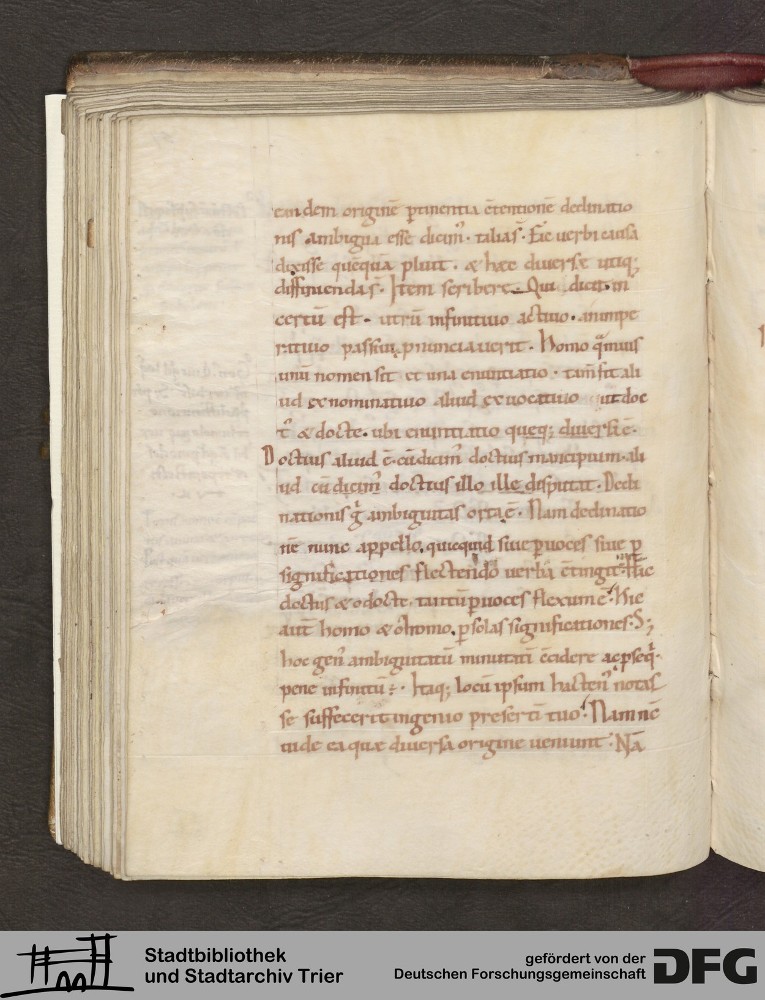 eandem originē ꝑtinentia ētentionē declinatio
nis ambigua esse dicimꝰ. talias. Eie verbi causa
dixisse quēquā pluit. & hæc diversæ utiq;
diffiniendas. Item scribere. Qui dicit in
certū est. utrū infinitiuo actiuo. an impe
ratiuo passiuo pnunciauerit. Homo q̄muis
unū nomen sit et una enuntiatio. tam̄ fit ali
ud ex nominatiuo aliud ex uocatiuo ut doc
tꝰ & docte. ubi enuntiatio queq; diuersa ē.
Doctius aliud ē. cū dicimꝰ doctius mancipium. ali
ud cū dicimꝰ doctius illo ille disputat. Decli
nationis g̊ ambiguitas orta ē. Nam declinatio
nē nunc appello. quicquid siue ꝑ uoces siue ꝑ
significationes flectendo uerba ētingit. Hic
doctus & o docte. tantū ꝑ uoces flexum ē. hic
aut̄ homo & o homo. ꝑ solas significationes. S;
hoc genꝰ ambiguitatū minutati ēcidere ac ꝑseq̄.
pene infinitū ÷. Itaq; locū ipsum hactenꝰ notas
se suffecerit ingenio presertī tuo. Nam nē
tude ea quæ diuersa origine ueniunt. Nā
Stadtbibliothek
und Stadtarchiv Trier
gefördert von der
Deutschen Forschungsgemeinschaft
DFG